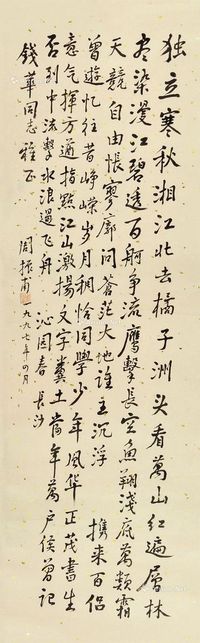 独立寒秋湘江北去橘子洲头看萬山红遍層林
尽染漫江碧透百舸争流鹰擊長空鱼翔淺底萬類霜
天競自由悵寥廓問苍茫大地谁主沉浮 携来百侣
曾遊忆往昔峥嵘岁月稠恰同学少年风华正茂書生
意气揮方遒指點江山激揚文字粪土當年萬户侯曾记
否到中流擊水浪遏飞舟 沁园春 长沙
錢華同志雅正 周振甫 一九九七年四月